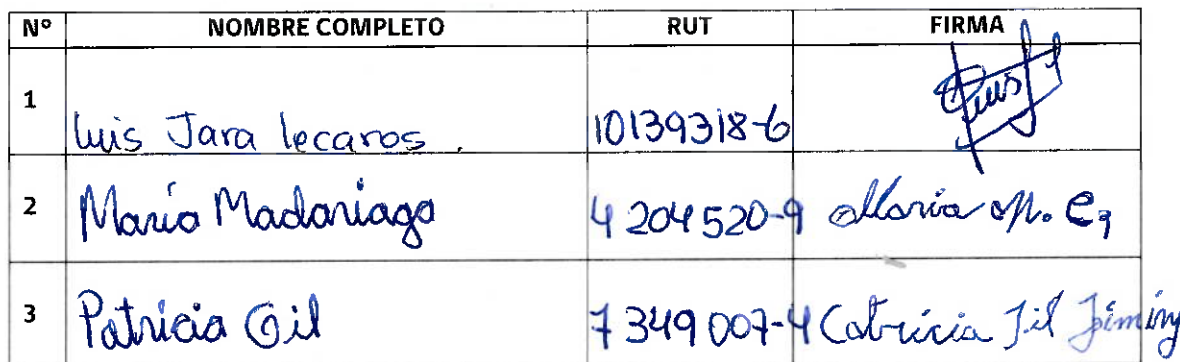 Nº NOMBRE COMPLETO RUT FIRMA
1 Luis Jara Lecaros. 10139318-6 Luis J
2 María Madariaga 4204520-9 María M.
3 Patricia Gil 7349007-4 Patricia Gil